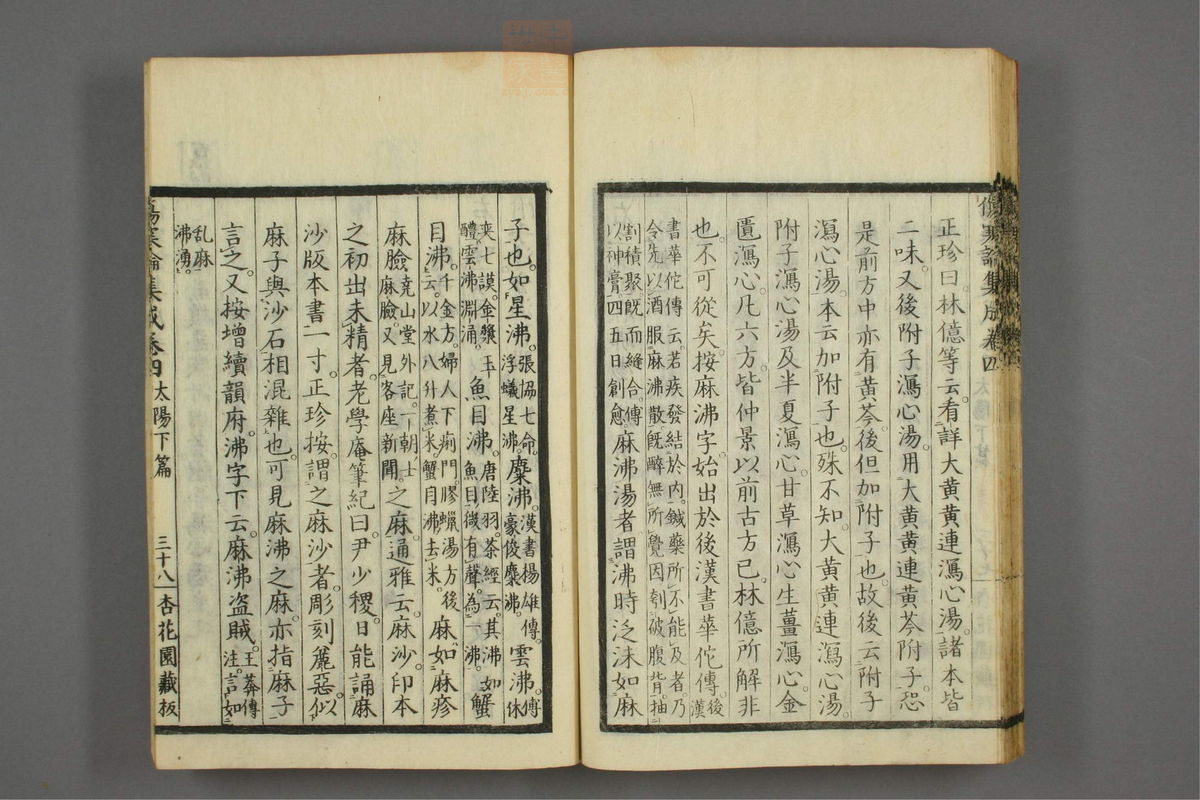 正珍曰。林億等云。看詳大黄黄連瀉心湯。諸本皆
二味。又後附子瀉心湯。用大黄黄連黄芩附子。恐
是前方中亦有黄芩。後但加附子也。故後云附子
瀉心湯。本云加附子也。殊不知。大黄黄連瀉心湯。
附子瀉心湯。及半夏瀉心。甘草瀉心。生薑瀉心。金
匱瀉心。凡六方。皆仲景以前古方已。林億所解非
也。不可從矣。按麻沸字。始出於後漢書華佗傳。後漢
書華佗傳云。若疾發結於内。鍼藥所不能及者。乃
令先以酒服麻沸散。既醉無所覺。因刳破腹背。抽
割積聚。既而縫合。傅
以神膏。四五日創愈
麻沸湯者。謂沸時泛沫如麻
傷寒論集成卷四
子也。如星沸。張協七命。
浮蟻星沸。
麋沸。漢書楊雄傳。
豪俊麋沸。
雲沸。傅休
奕七謨。金漿玉
醴。雲沸淵涌。
魚目沸。唐陸羽。茶經云。其沸如
魚目。微有聲。為一沸。
蟹
目沸。千金方。婦人下痢門。膠蠟湯方後
云。以水八升煮米。蟹目沸去米。
麻如麻疹
麻臉。堯山堂外記。一朝士
麻臉。又見客座新聞。
之麻。通雅云。麻沙。印本
之初出未精者。老學庵筆紀曰。尹少稷。日能誦麻
沙版本書一寸。正珍按。謂之麻沙者。彫刻麁惡。似
麻子與沙石相混雜也。可見麻沸之麻。亦指麻子
言之。又按增續韻府。沸字下云。麻沸盗賊。王莽傳
注。言如
乱麻
沸湧。
傷寒論集成卷四 太陽下篇 三十八 杏花園藏板